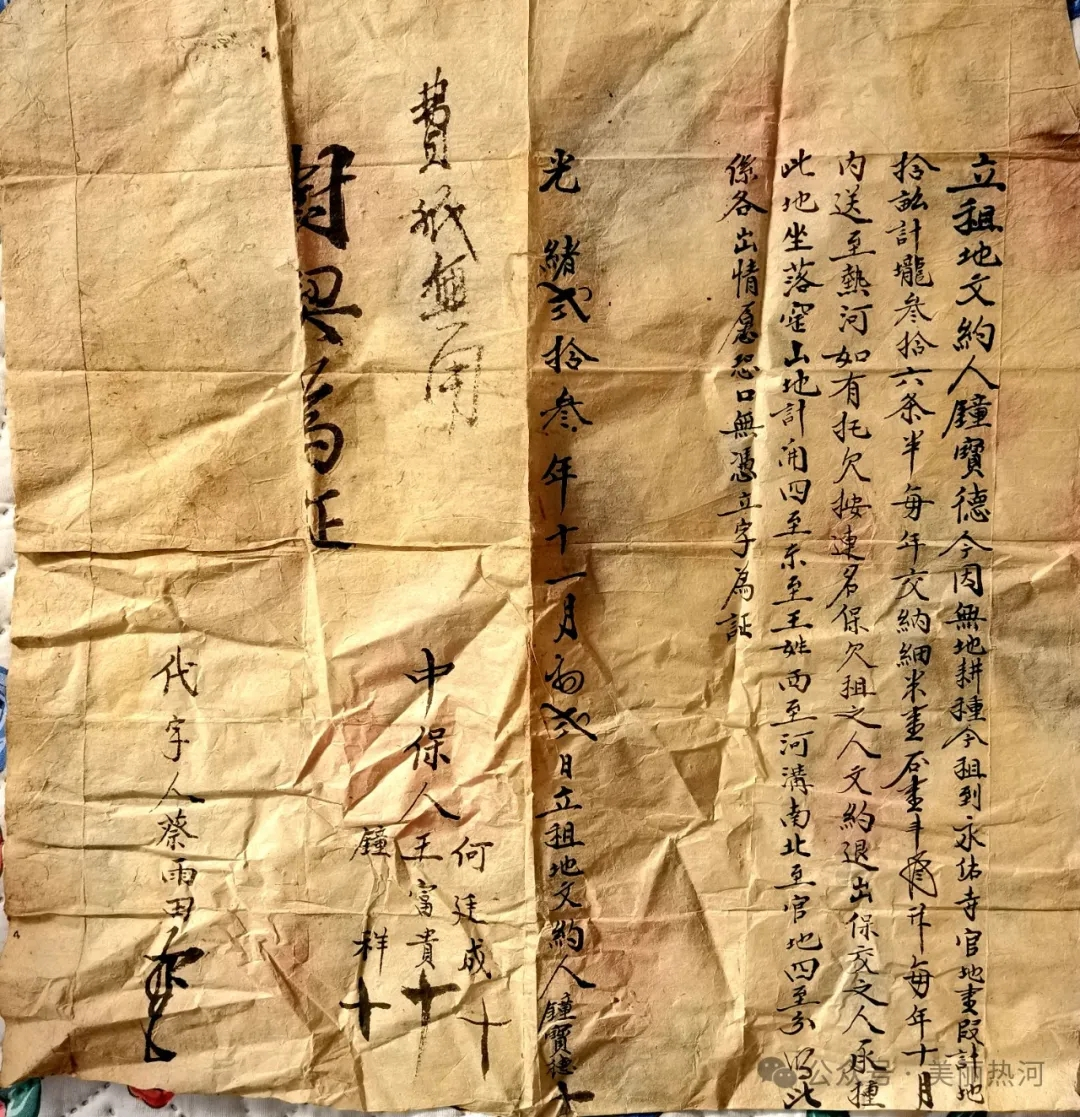 立租地文約人鐘寶德今因無地耕種今租到永佑寺官地壹段計地
拾畝計壠叁拾六条半每年交納細米壹石壹斗 每年十月
内送至熱河如有托欠按連名保欠租之人文約退出保交之人承種
此地坐落 山地計開四至东至王姓西至河溝南北至官地四至分 此
係各出情愿恐口無憑立字為証
光緒弍拾叁年十一月初弍日立租地文約人鐘寶德十
費紙無用
中保人
何廷成十
王富貴十
鐘祥十
契为证
代字人蔡雨田
公众号·美丽热河